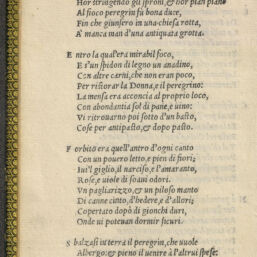 Hor stringendo gli sproni, & hor pian piano
Al fioco peregrin fu bona duce,
Fin che giunsero in una chiesa rotta,
A' manca man d'una antiquata grotta.
E ntro la qual'era mirabil foco,
E s'un spidon di legno un anadino,
Con altre carni, che non eran poco,
Per ristorar la Donna, e il peregrino:
La mensa era acconcia al proprio loco,
Con abondantia sol di pane, e uino:
Vi ritrouarno poi sotto d'un basto,
Cose per antipasto, & dopo pasto.
F orbito era quell'antro d'ogni canto
Con un pouero letto, e pien di fiori;
Iui'l giglio, il narciso, e l'amaranto,
Rose, e uiole di soani odori.
Vn pagliarizzo, & un piloso manto
Di canne cinto, d'hedere, e d'allori;
Copertato dopò di gionchi duri,
Onde ui poteuan dormir sicuri.
S balzasi in terra il peregrin, che uuole
Albergo; & pieno il uenire à l'altrui spese: